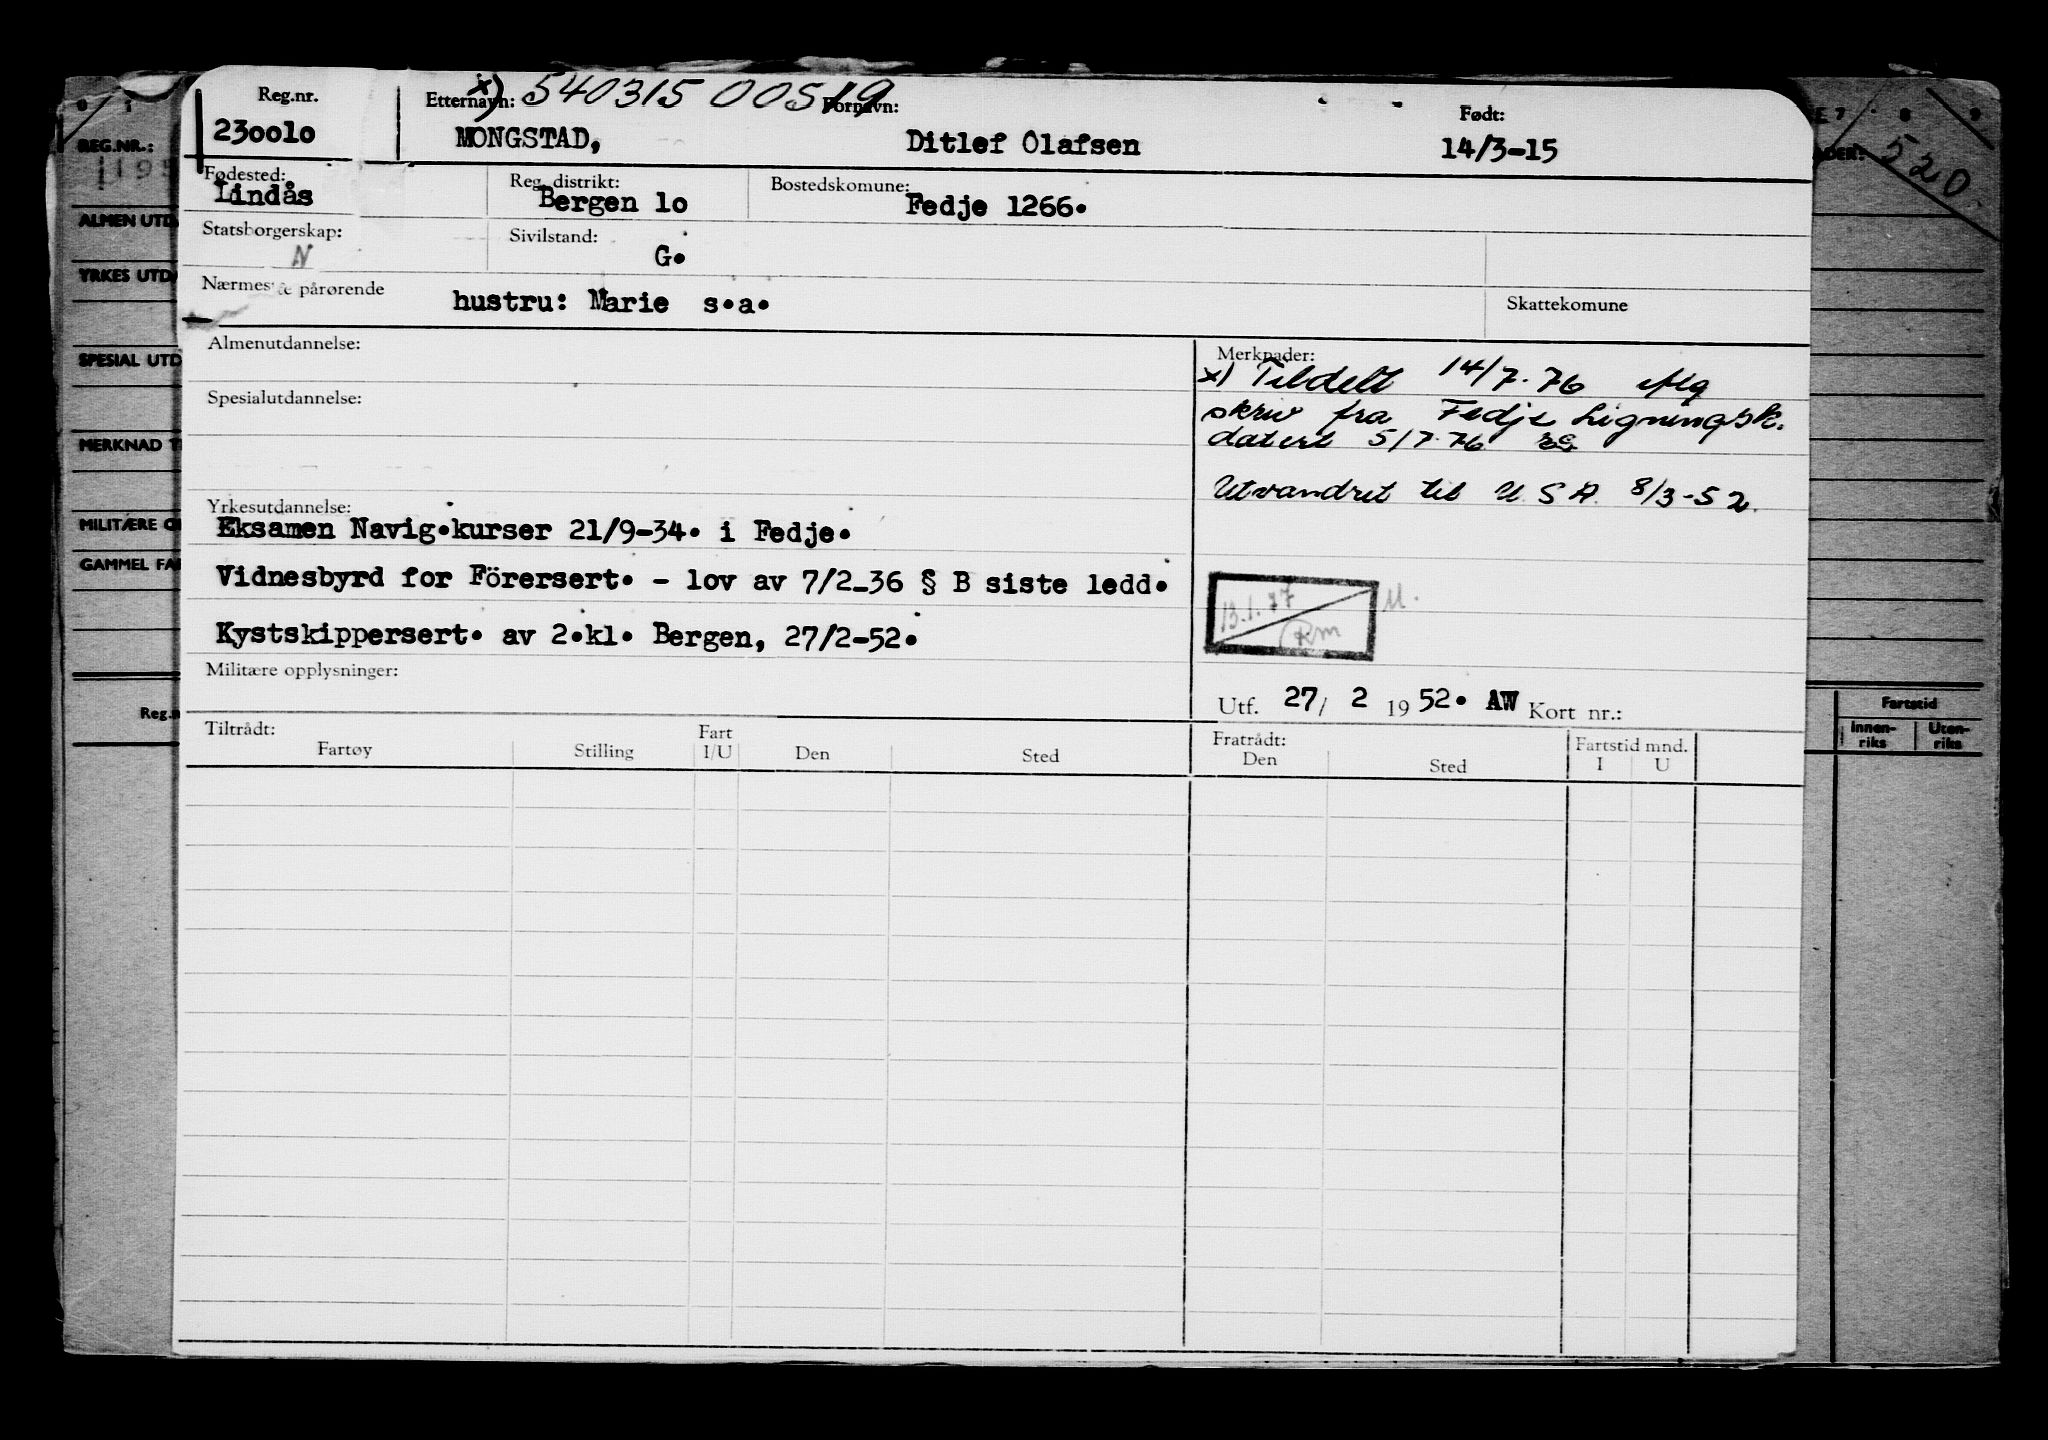 x) 540315 00519
Reg.nr. Etternavn: Fornavn: Født:
230010 MONGSTAD, Ditlef Olafsen 14/3-15
Fødested: Reg. distrikt: Bostedskomune:
Lindås Bergen 10 Fedje 1266.
Statsborgerskap: Sivilstand:
N G.
Nærmeste pårørende
hustru: Marie s.a. Skattekomune
Almenutdannelse:
Spesialutdannelse:
Yrkesutdannelse:
Eksamen Navig.kurser 21/9-34. i Fedje.
Vidnesbyrd for Förersert. - lov av 7/2-36 § B siste ledd.
Kystskippersert. av 2.kl. Bergen, 27/2-52.
Militære opplysninger:
Merknader:
x) Tildelt 14/7-76 iflg
skriv fra Fedje Ligningsk.
datert 5/7-76
Utvandret til U S A. 8/3-52.
13.1.77
Rm
Utf. 27/ 2 1952. AW Kort nr.:
Tiltrådt: Fratrådt:
Fartøy Stilling Fart I/U Den Sted Den Sted Fartstid mnd. I U
REG.NR.:
ALMEN UTD
YRKES UTD
SPESIAL UTD
MERKNAD T
MILITÆRE O
GAMMEL FA
Reg.n
520
Fartstid
Innen-
riks
Uten-
riks